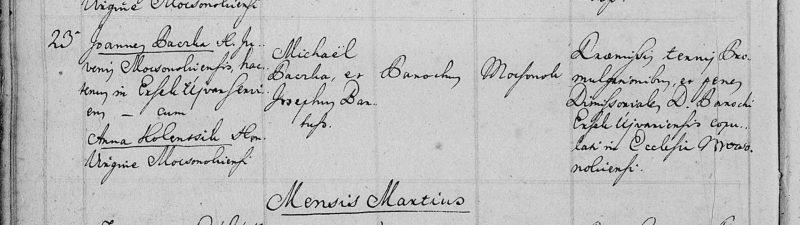 Virgine Mocsonokiensi
23ª Joannes Bacrka H. Ju-
venis Mocsonokiensis, hac-
tenus in Ersek Ujvar Servi-
ens – cum
Anna Holentsik Hon.
Virgine Mocsonokiensi
Michaël
Bacrka, et
Josephus Bar-
tuss.
Parochus
Mocsonok
Præmissis ternis Pro-
mulgationibus, et penes
Dimissoriales D. Parochi
Ersek Ujvariensis copu-
lati in Ecclesia Mocso-
nokiensi.
Mensis Martius